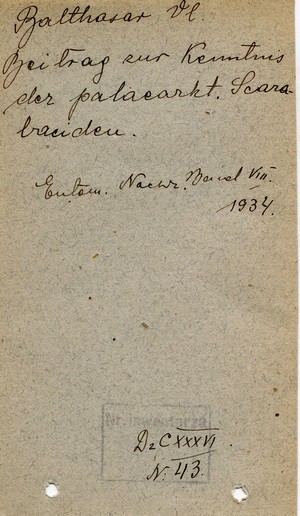 Balthasar Vl.
Beitrag zur Kenntnis
der palaearkt. Scara-
baeiden.
Entom. Nachr. Band VIII.
1934.
Nr. inwentarza
Dz CXXXVI.
N: 43.